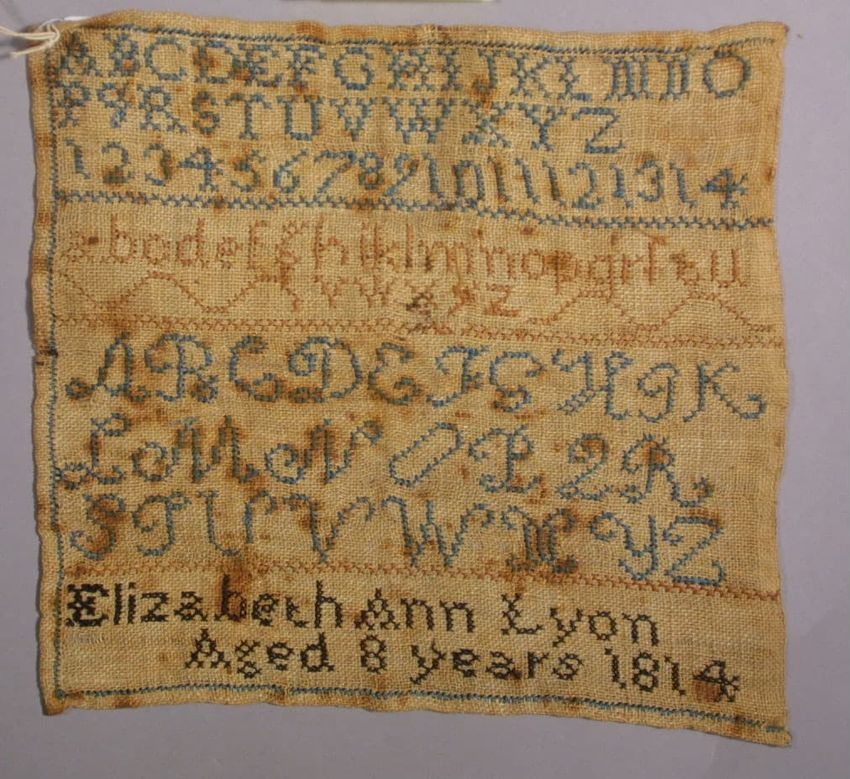 ABCDEFGHIJKLMNO
PqRSTUVWXYZ
1234567891011121314
abcdefghiklmnopqrſtu
vwxyz
ABCDEFGHIK
LMNOPQR
STUVWXYZ
Elizabeth Ann Lyon
Aged 8 years 1814